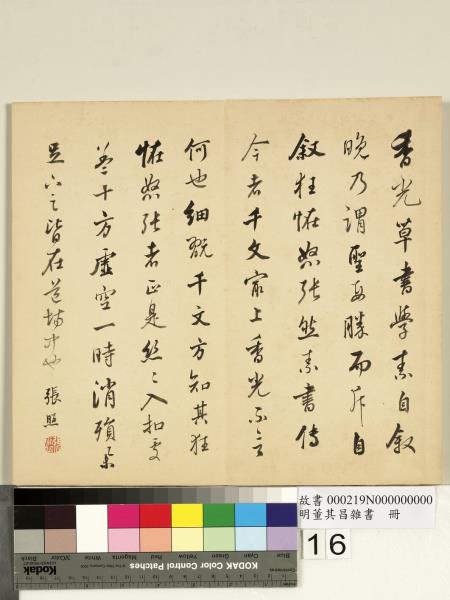 香光草書學素自敘
晚乃謂聖母勝而斥自
敘狂怪怒張然素書傳
今者千文宜上香光不言
何也細翫千文方知其狂
怪怒張者正是絲絲入扣處
等十方虛空一時消殞東
足下之皆在道場中也 張照
故書 000219N000000000
明董其昌雜書 冊
16
Blue Cyan Green Yellow Red Magenta White 3/Color Black
KODAK Color Control Patches